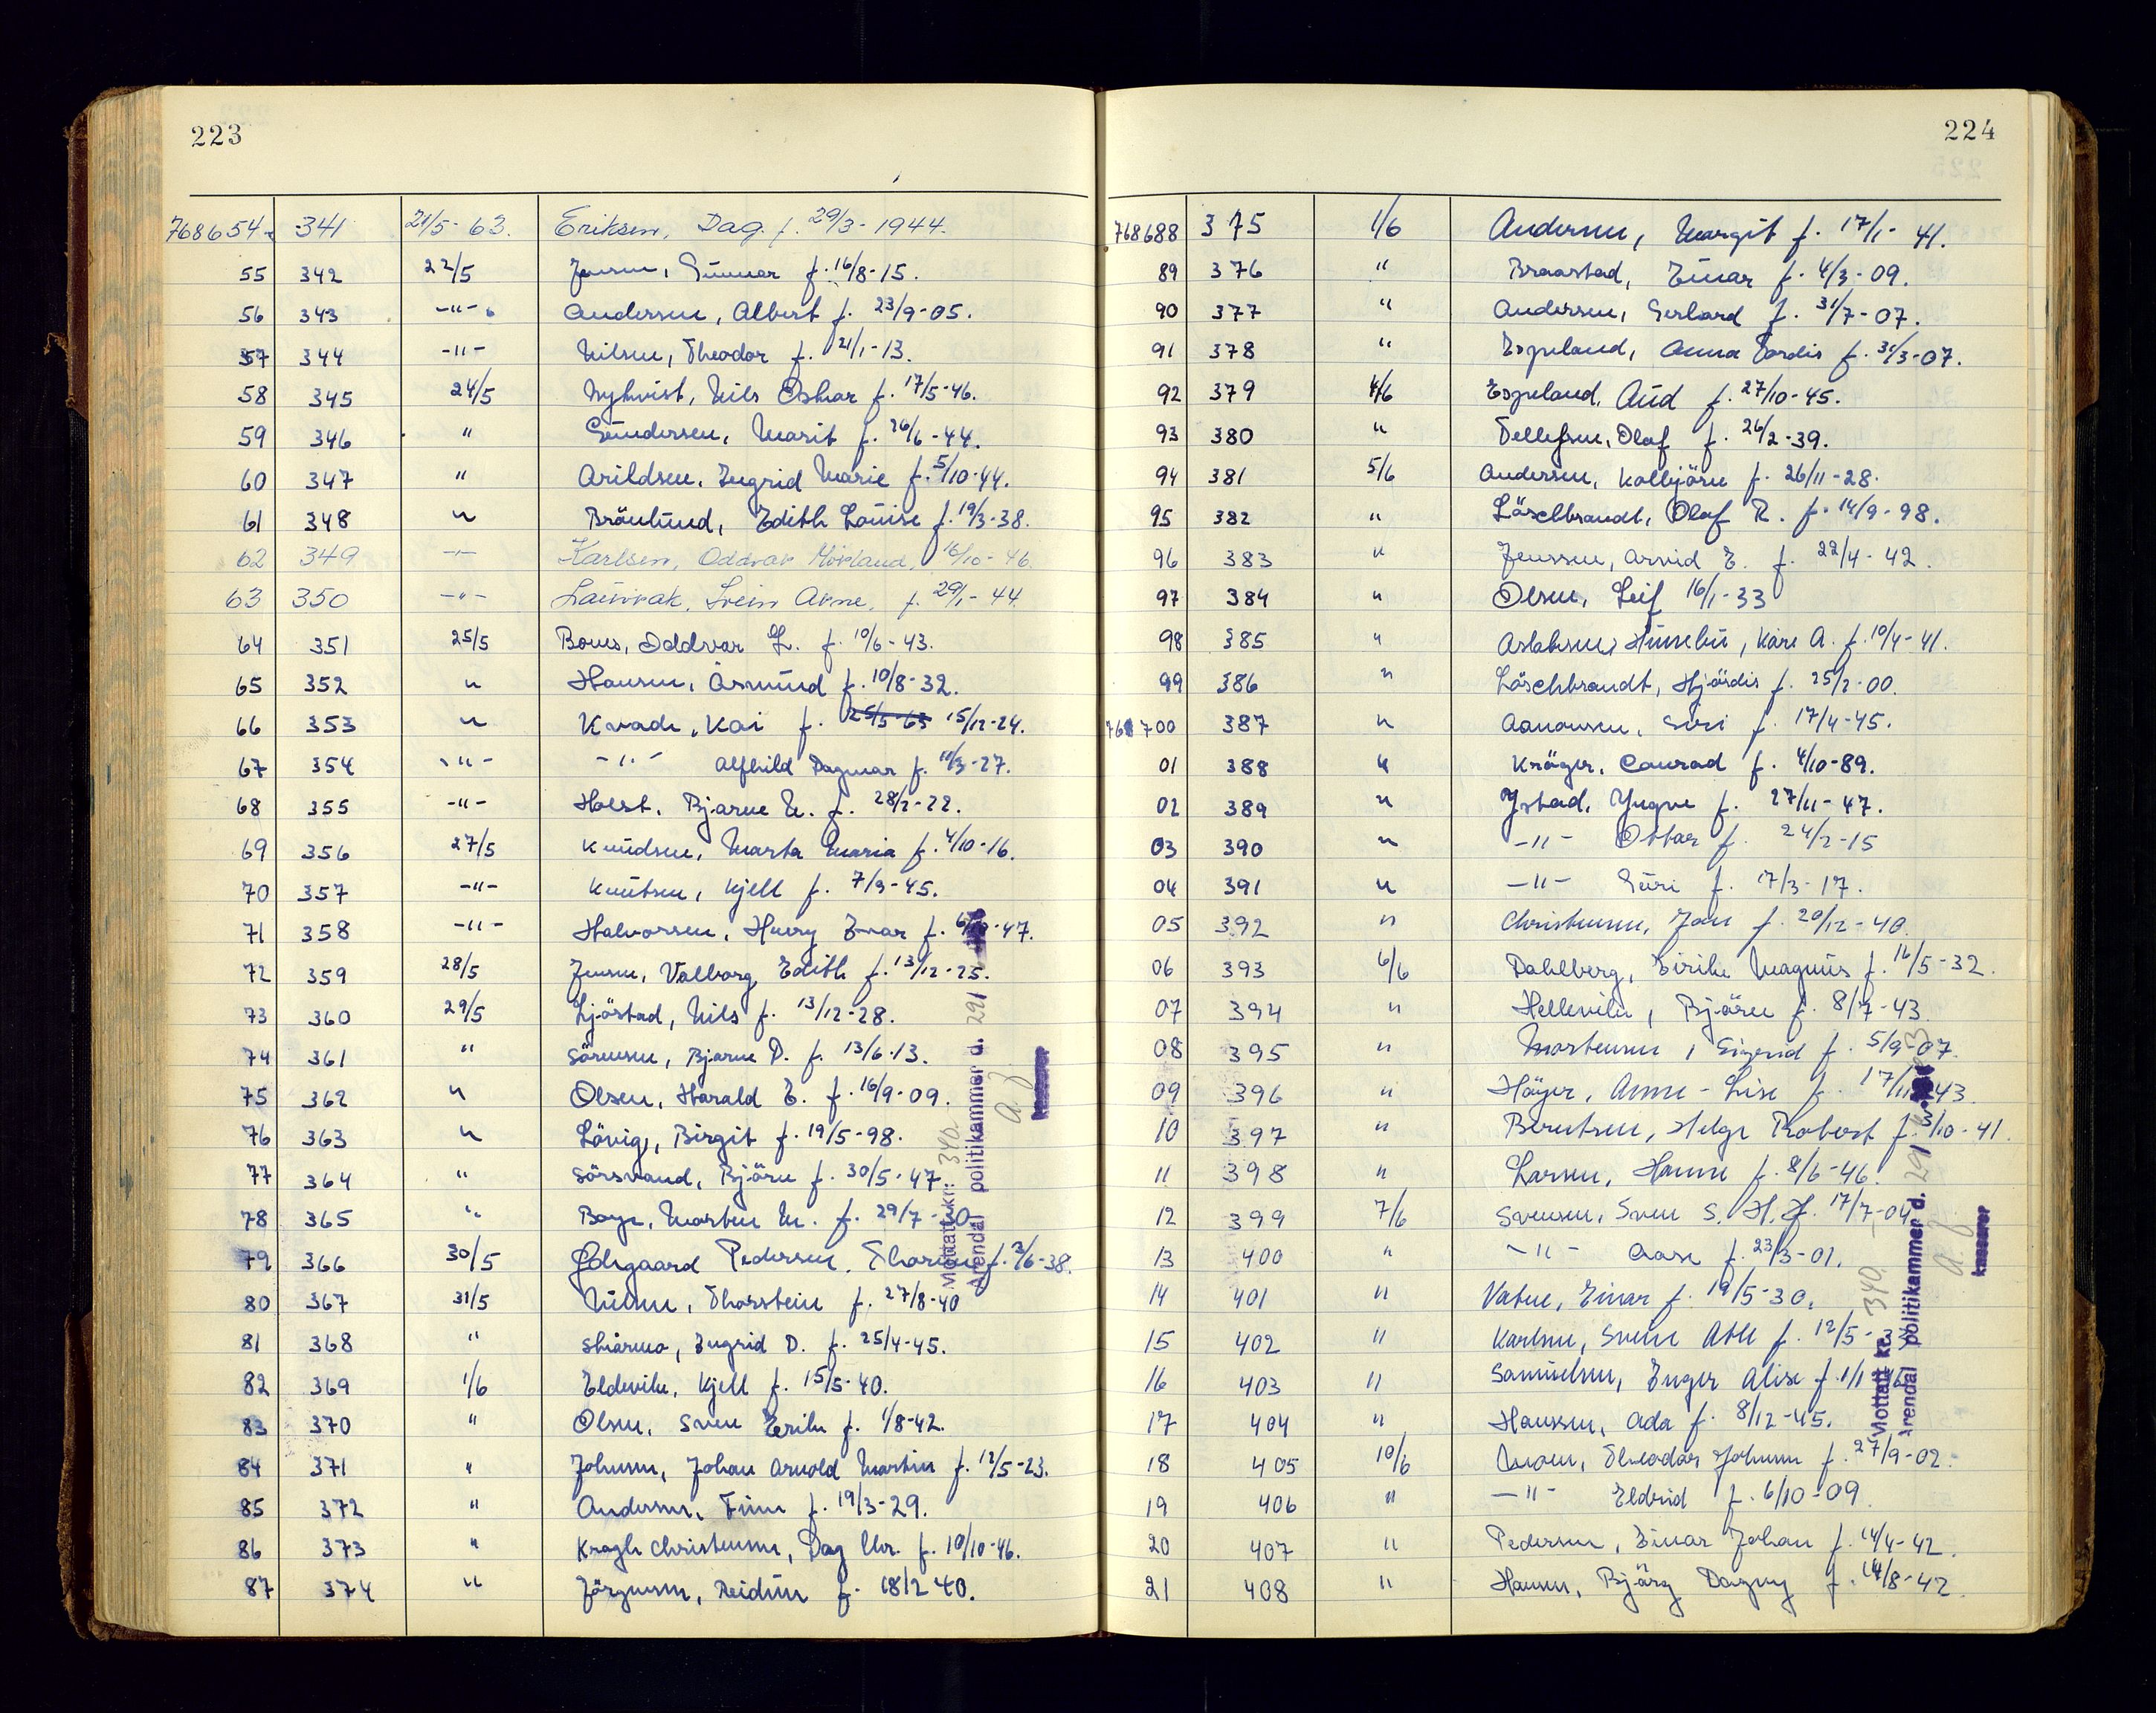 223
768654 341 21/5-63. Eriksen, Dag. f. 29/3-1944.
55 342 22/5 Jensen, Gunnar f. 16/8-15.
56 343 -"- Andersen, Albert f. 23/9-05.
57 344 -"- Nilsen, Theodor f. 21/1-13.
58 345 24/5 Nykvist, Nils Oskar f. 17/5-46.
59 346 " Gundersen, Marit f. 26/6-44.
60 347 " Arildsen, Ingrid Marie f. 5/10-44.
61 348 " Brönlund, Edith Louise f. 19/3-38.
62 349 -"- Karlsen, Oddvar Mörland, 16/10-46.
63 350 -"- Svein Arne, f. 29/1-44.
64 351 25/5 Bous, Oddvar L. f. 10/6-43.
65 352 " Hansen, Åsmund f. 10/8-32.
66 353 " Kvade, Kai f. 25/5-63 15/12-24.
67 354 -"- -"- Alfhild Dagmar f. 11/3-27.
68 355 -"- Holst, Bjarne N. f. 28/2-22.
69 356 27/5 Knudsen, Marta Maria f. 4/10-16.
70 357 -"- Knutsen, Kjell f. 7/3-45.
71 358 -"- Halvorsen, Henry Ivar f. -47.
72 359 28/5 Jensen, Valborg Edith f. 13/12-25.
73 360 29/5 Ljöstad, Nils f. 13/12-28.
74 361 " Sörensen, Bjarne D. f. 13/6-13.
75 362 " Olsen, Harald E. f. 16/9-09.
76 363 " Lövig, Birgit f. 19/5-98.
77 364 " Sörsvand, Björn f. 30/5-47
78 365 " Boye, Morten M. f. 29/7-
79 366 30/5 Ödegaard Pedersen, f. 3/6-38.
80 367 31/5 Nilsen, Thorstein f. 27/8-40
81 368 " Skarmo, Ingrid D. f. 25/4-45.
82 369 1/6 Eldevik, Kjell f. 15/5-40.
83 370 " Olsen, Sven Eerik f. 1/8-42.
84 371 " Johnsen, Johan Arnold Martin f. 12/5-23.
85 372 " Andersen, Finn f. 19/3-29.
86 373 " Kragh Christensen, Dag Chr. f. 10/10-46.
87 374 " Jörgensen, Reidun f. 18/2 40.
Mottatt kr. 340.
Arendal politikammer d. 29/
a. f
kasserer
224
768688 375 1/6 Andersen, Margit f. 17/1-41.
89 376 " Braastad, Einar f. 4/3-09.
90 377 " Andersen, Gerhard f. 31/7-07.
91 378 " Espeland, Anna Tordis f. 31/3-07.
92 379 4/6 Espeland, Aud f. 27/10-45.
93 380 " Tellefsen, Olaf f. 26/2-39.
94 381 5/6 Andersen, Kolbjörn f. 26/11-28.
95 382 " Löschbrandt, Olaf R. f. 14/9-98.
96 383 " Jenssen, Arvid E. f. 22/4-42.
97 384 " Olsen, Leif 16/1-33
98 385 " Aslaksen, Kåre A. f. 10/4-41.
99 386 " Löschbrandt, Hjördis f. 25/2-00.
768700 387 " Aanonsen, Siri f. 17/4-45.
01 388 " Kröger, Conrad f. 4/10-89.
02 389 " Ystad, Yngve f. 27/11-47.
03 390 " -"- Ottar f. 24/2-15
04 391 " -"- Guri f. 17/3-17.
05 392 " Christensen, Jan f. 20/12-40.
06 393 6/6 Dahlberg, Eirik Magnus f. 16/5-32.
07 394 " Hellevik, Björn f. 8/7-43.
08 395 " Mortensen, Sigurd f. 5/9-07.
09 396 " Höyer, Anne-Lise f. 17/11-43.
10 397 " Berntsen, Helge Robert f. 3/10-41.
11 398 " Larsen, Hanne f. 8/6-46.
12 399 7/6 Svensen, Sven S. H. f. 17/7-04
13 400 " -"- Aase f. 23/3-01.
14 401 " Vatne, Einar f. 19/5-30.
15 402 " Karlsen, Svein Atle f. 12/5-
16 403 " Samuelsen, Inger Alise f. 1/1
17 404 " Hanssen, Ada f. 8/12-45.
18 405 10/6 Moen, Theodor Johan f. 27/9-02.
19 406 " -"- Eldrid f. 6/10-09.
20 407 " Pedersen, Einar Johan f. 14/4-42.
21 408 " Hansen, Björg Dagny f. 14/8-42.
Mottatt kr. 340.
Arendal politikammer d. 29/
a. f
kasserer